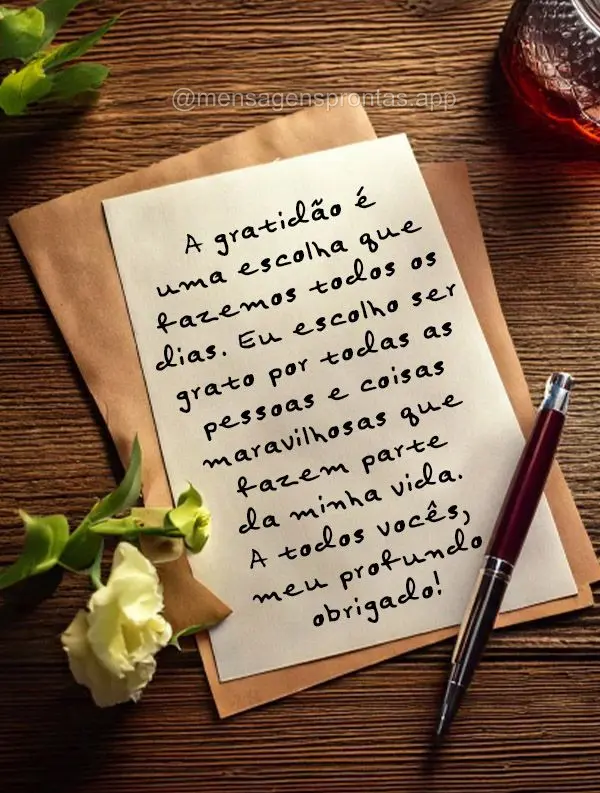 @mensagensprontas.app
A gratidão é
uma escolha que
fazemos todos os
dias. Eu escolho ser
grato por todas as
pessoas e coisas
maravilhosas que
fazem parte
da minha vida.
A todos vocês,
meu profundo
obrigado!